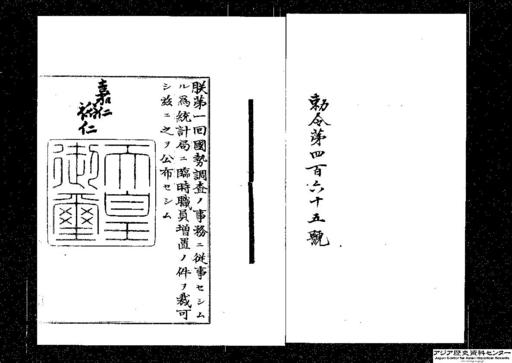 勅令第四百六十五號
朕第一回國勢調査ノ事務ニ從事セシム
ル爲統計局ニ臨時職員增置ノ件ヲ裁可
シ玆ニ之ヲ公布セシム
嘉仁
裕仁
天皇
御璽
アジア歴史資料センター
Japan Center for Asian Historical Records